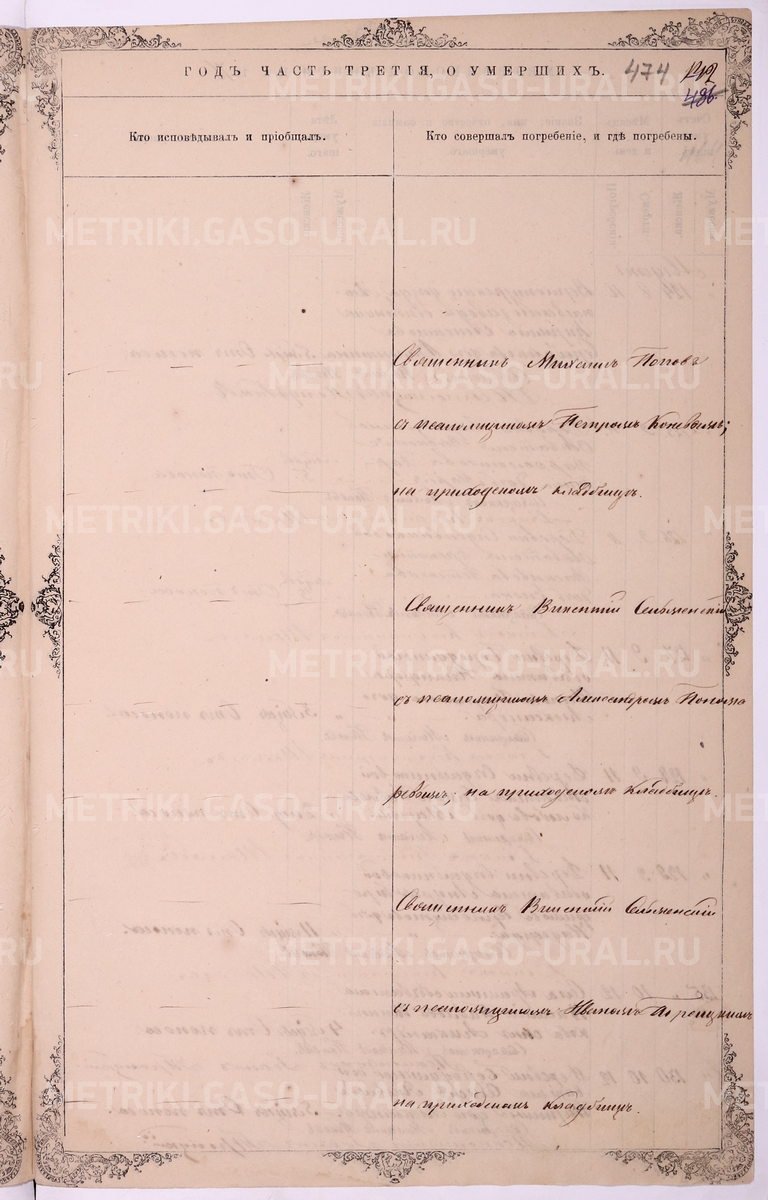 ГОДЪ ЧАСТЬ ТРЕТІЯ, О УМЕРШИХЪ. 474 212
486
Кто исповѣдывалъ и пріобщалъ.
Кто совершалъ погребеніе, и гдѣ погребены.
METRIKI.GASO-URAL.RU
Священникъ Михаилъ Поповъ
съ псаломщикомъ Петромъ Коневымъ;
на приходскомъ кладбищѣ.
Священникъ Викентій
съ псаломщикомъ Александромъ Понома
ревымъ; на приходскомъ кладбищѣ.
Священникъ Викентій
съ псаломщикомъ Иваномъ
на приходскомъ кладбищѣ.